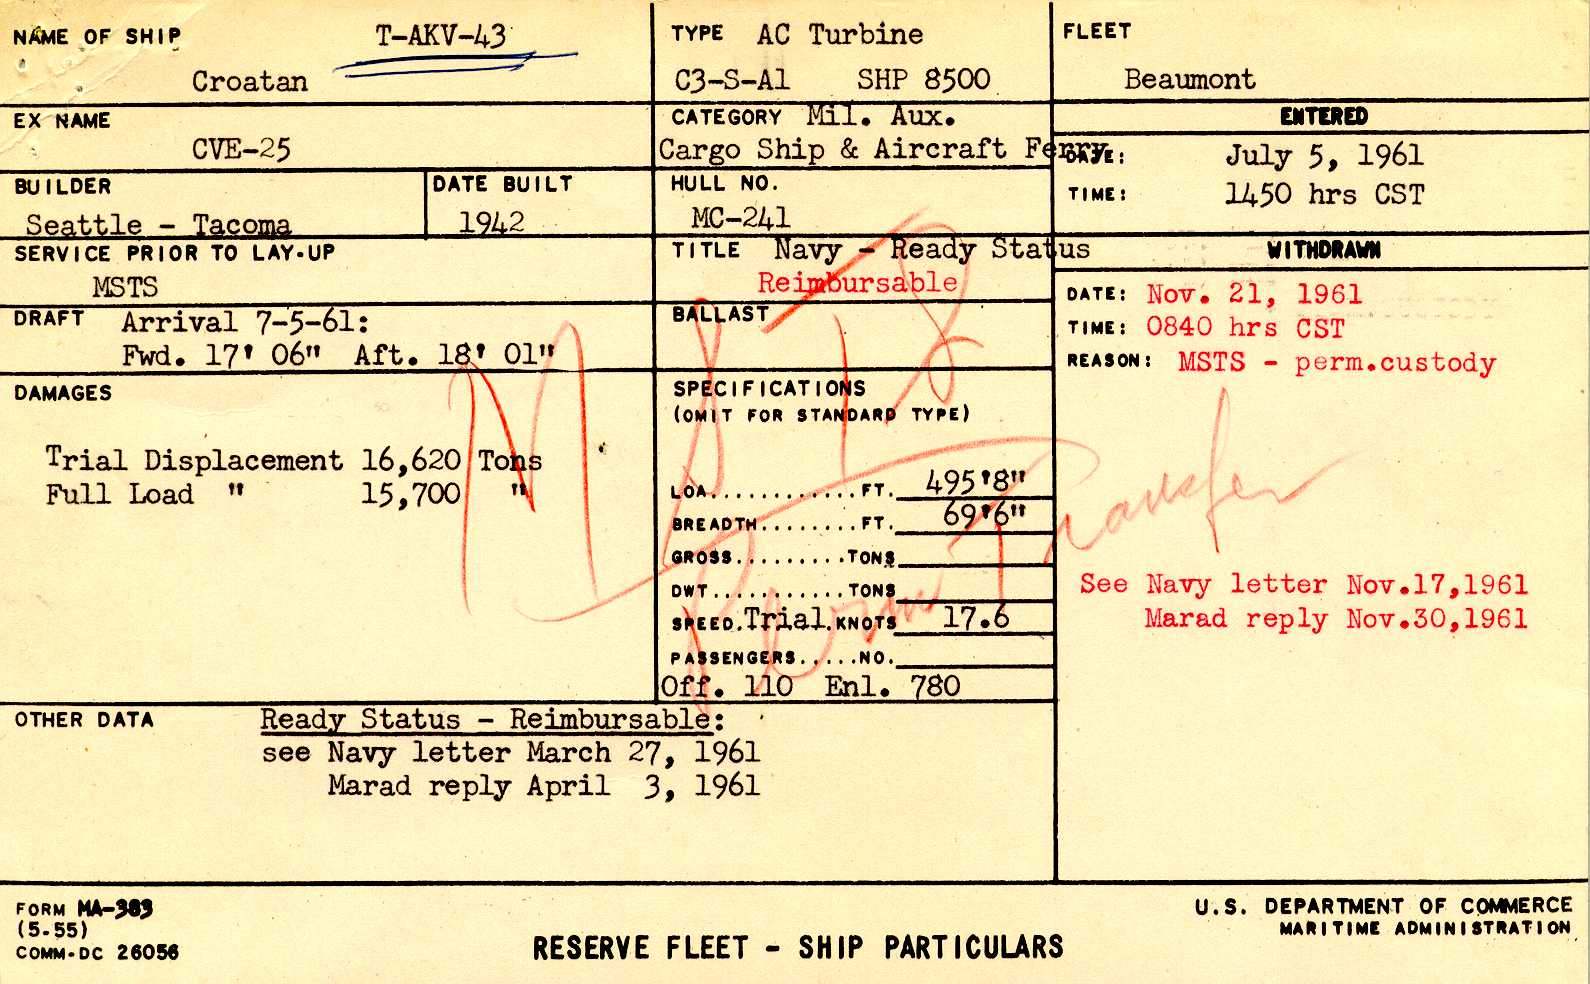 NAME OF SHIP T-AKV-43
Croatan
EX NAME
CVE-25
BUILDER
Seattle - Tacoma
DATE BUILT
1942
SERVICE PRIOR TO LAY-UP
MSTS
DRAFT Arrival 7-5-61:
Fwd. 17' 06" Aft. 18' 01"
DAMAGES
Trial Displacement 16,620 Tons
Full Load " 15,700 "
TYPE AC Turbine
C3-S-A1 SHP 8500
CATEGORY Mil. Aux.
Cargo Ship & Aircraft Ferry
HULL NO.
MC-241
TITLE Navy - Ready Status
Reimbursable
BALLAST
SPECIFICATIONS
(OMIT FOR STANDARD TYPE)
LOA............FT. 495'8"
BREADTH........FT. 69'6"
GROSS.........TONS
DWT...........TONS
SPEED.Trial.KNOTS 17.6
PASSENGERS.....NO.
Off. 110 Enl. 780
FLEET
Beaumont
ENTERED
DATE: July 5, 1961
TIME: 1450 hrs CST
WITHDRAWN
DATE: Nov. 21, 1961
TIME: 0840 hrs CST
REASON: MSTS - perm.custody
See Navy letter Nov.17,1961
Marad reply Nov.30,1961
MSTS
Perm Transfer
OTHER DATA Ready Status - Reimbursable:
see Navy letter March 27, 1961
Marad reply April 3, 1961
FORM MA-383
(5-55)
COMM-DC 26056
RESERVE FLEET - SHIP PARTICULARS
U.S. DEPARTMENT OF COMMERCE
MARITIME ADMINISTRATION